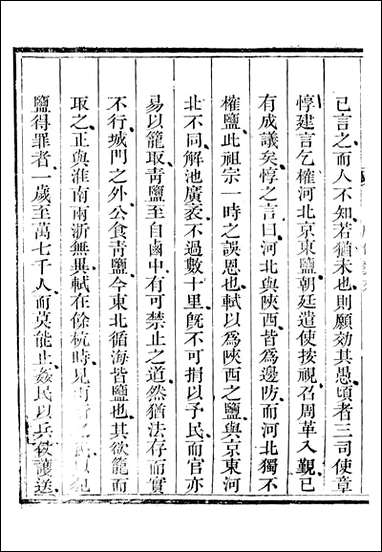 已言之而人不知若猶未也則願効其愚頃者三司使章
惇建言乞榷河北京東鹽朝廷遣使按視召周革入覲已
有成議矣惇之言曰河北與陝西皆爲邊防而河北獨不
榷鹽此祖宗一時之誤恩也軾以爲陝西之鹽與京東河
北不同解池廣袤不過數十里旣不可捐以予民而官亦
易以籠取靑鹽至自鹵中有可禁止之道然猶法存而實
不行城門之外公食靑鹽今東北循海皆鹽也其欲籠而
取之正與淮南兩浙無異軾在餘杭時見
鹽得罪者一歲至萬七千人而莫能止姦民以兵仗護送